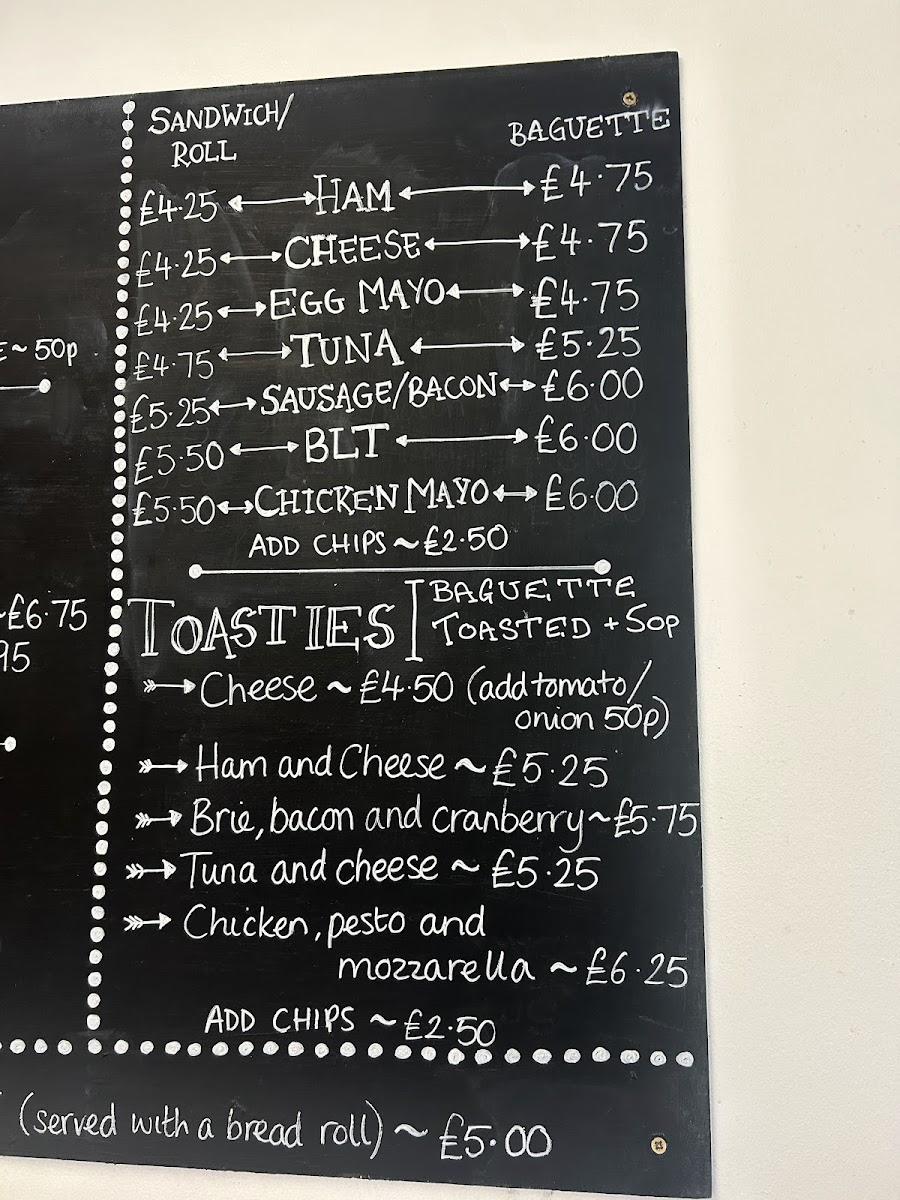 SANDWICH/
ROLL
BAGUETTE
£4.25 HAM £4.75
£4.25 CHEESE £4.75
£4.25 EGG MAYO £4.75
£4.75 TUNA £5.25
£5.25 SAUSAGE/BACON £6.00
£5.50 BLT £6.00
£5.50 CHICKEN MAYO £6.00
ADD CHIPS ~ £2.50
TOASTIES
BAGUETTE
TOASTED + 50p
Cheese ~ £4.50 (add tomato/
onion 50p)
Ham and Cheese ~ £5.25
Brie, bacon and cranberry ~ £5.75
Tuna and cheese ~ £5.25
Chicken, pesto and
mozzarella ~ £6.25
ADD CHIPS ~ £2.50
E ~ 50p
~£6.75
95
(served with a bread roll) ~ £5.00